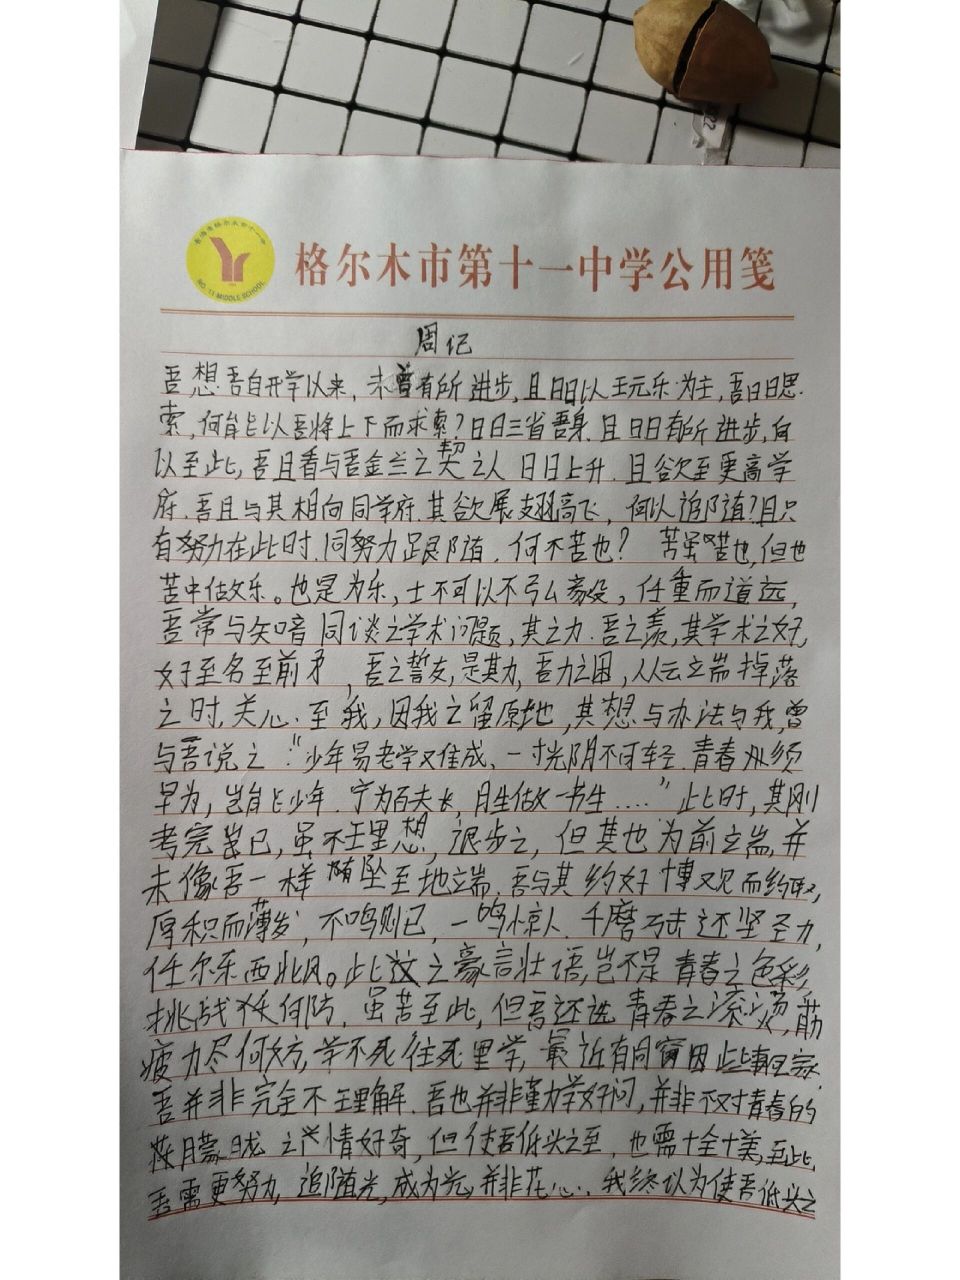 青海省格尔木市第十一中
NO. 11 MIDDLE SCHOOL
格尔木市第十一中学公用笺
周记
吾想吾自开学以来,未曾有所进步,且日日以玩乐为主,吾日日思
索,何能以吾将上下而求索?日日三省吾身.且日日有所进步,何
以至此,吾且看与吾金兰之契之人日日上升.且欲至更高学
府.吾且与其相向同学府.其欲展翅高飞,何以追随?且只
有努力在此时.同努力跟随.何不苦也?苦虽苦也,但也
苦中做乐。也是为乐,士不可以不弘毅,任重而道远,
吾常与知音同谈之学术问题,其之力.吾之羡,其学术之好,
好至名至前矛,吾之誓友,是其力,吾力之困,从云之端掉落
之时,关心.至我,因我之留原地,其想与办法与我,曾
与吾说之“少年易老学又难成、一寸光阴不可轻.青春必须
早为,岂能少年.宁为百夫长,胜做一书生....”此时,其刚
考完岂已,虽不理想,退步之,但其也为前之端,并
未像吾一样随坠至地端.吾与其约好博观而约取,
厚积而薄发,不鸣则已,一鸣惊人.千磨万击还坚劲,
任尔东西北风。此之豪言壮语,岂不是青春之色彩,
挑战任何阵,虽苦至此,但吾还选青春之滚烫,筋
疲力尽何妨,学不死往死里学,最近有同窗因此事
吾并非完全不理解.吾也并非勤学好问,并非不对青春的
朦胧之情好奇,但使吾低头之至,也需十全十美,至此,
吾需更努力,追随光,成为光,并非花心..我终以为使吾低头之